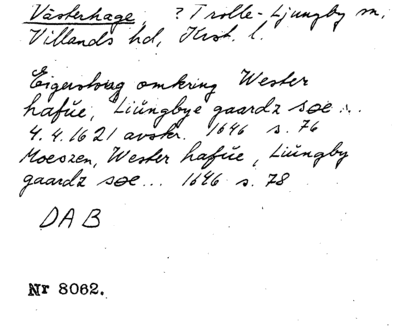 Västerhage, ? Trolle-Ljungby sn,
Villands hd, Krst. l.
Eigerskoug omkring Wester
hafůe, Liŭngbye gaardz soe...
4.4.1621 avskr. 1646 s. 76
Moeszen, Wester hafůe, Liŭngby
gaardz soe... 1646 s. 78
DAB
Nr 8062.